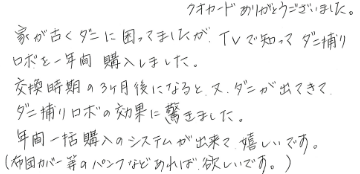 クオカードありがとうございました。
家が古くダニに困ってましたが、TVで知ってダニ捕り
ロボを一年間購入しました。
交換時期の3ヶ月後になると、又、ダニが出てきて
ダニ捕りロボの効果に驚きました。
年間一括購入のシステムが出来て嬉しいです。
(布団カバー等のパンフなどあれば、欲しいです。)